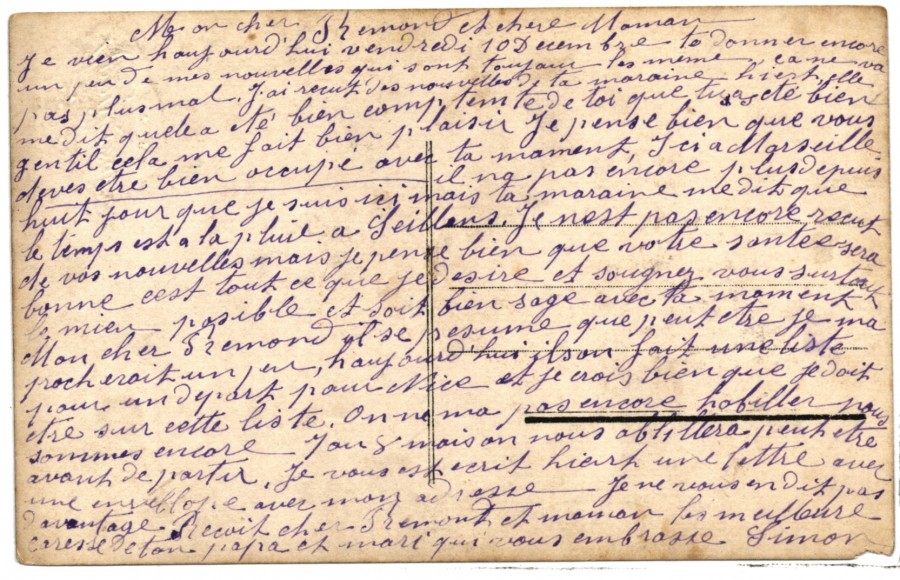 Mon cher Fremond et chere Maman
Je vien haujourd'hui vendredi 10 Decembre te donner encore
un peu de mes nouvelles qui sont toujour les meme, ca ne va
pas plus mal. J'ai recut des nouvelles de ta maraine hiert, elle
me dit quele a eté bien comptente de toi que tu as eté bien
gentil cela me fait bien plaisir Je pense bien que vous
deves etre bien occupé avec ta moment, Ici a Marseille
il na pas encore plus depuis
huit jour que je suis ici mais ta maraine me dit que
le temps est a la pluie a Seillens. Je nest pas encore recut
de vos nouvelles mais je pense bien que votre santée sera
bonne cest tout ce que je desire et sougnez vous surtout
le mieu posible et soit bien sage avec ta moment
Mon cher Fremond il se pesume que peut etre je ma
procherait un peu, haujourd'hui ilson fait une liste
pour un depart pour Nice et je crois bien que je doit
etre sur cette liste. On na ma pas encore habiller nous
sommes encore mais on nous abillera peut etre
avant de partir, Je vous est ecrit hiert une lettre avec
une envellope avec mon adresse Je ne vous en dit pas
davantage Recoit cher Fremont et maman les meilleure
caresse de ton papa et mari qui vous embrasse Simon